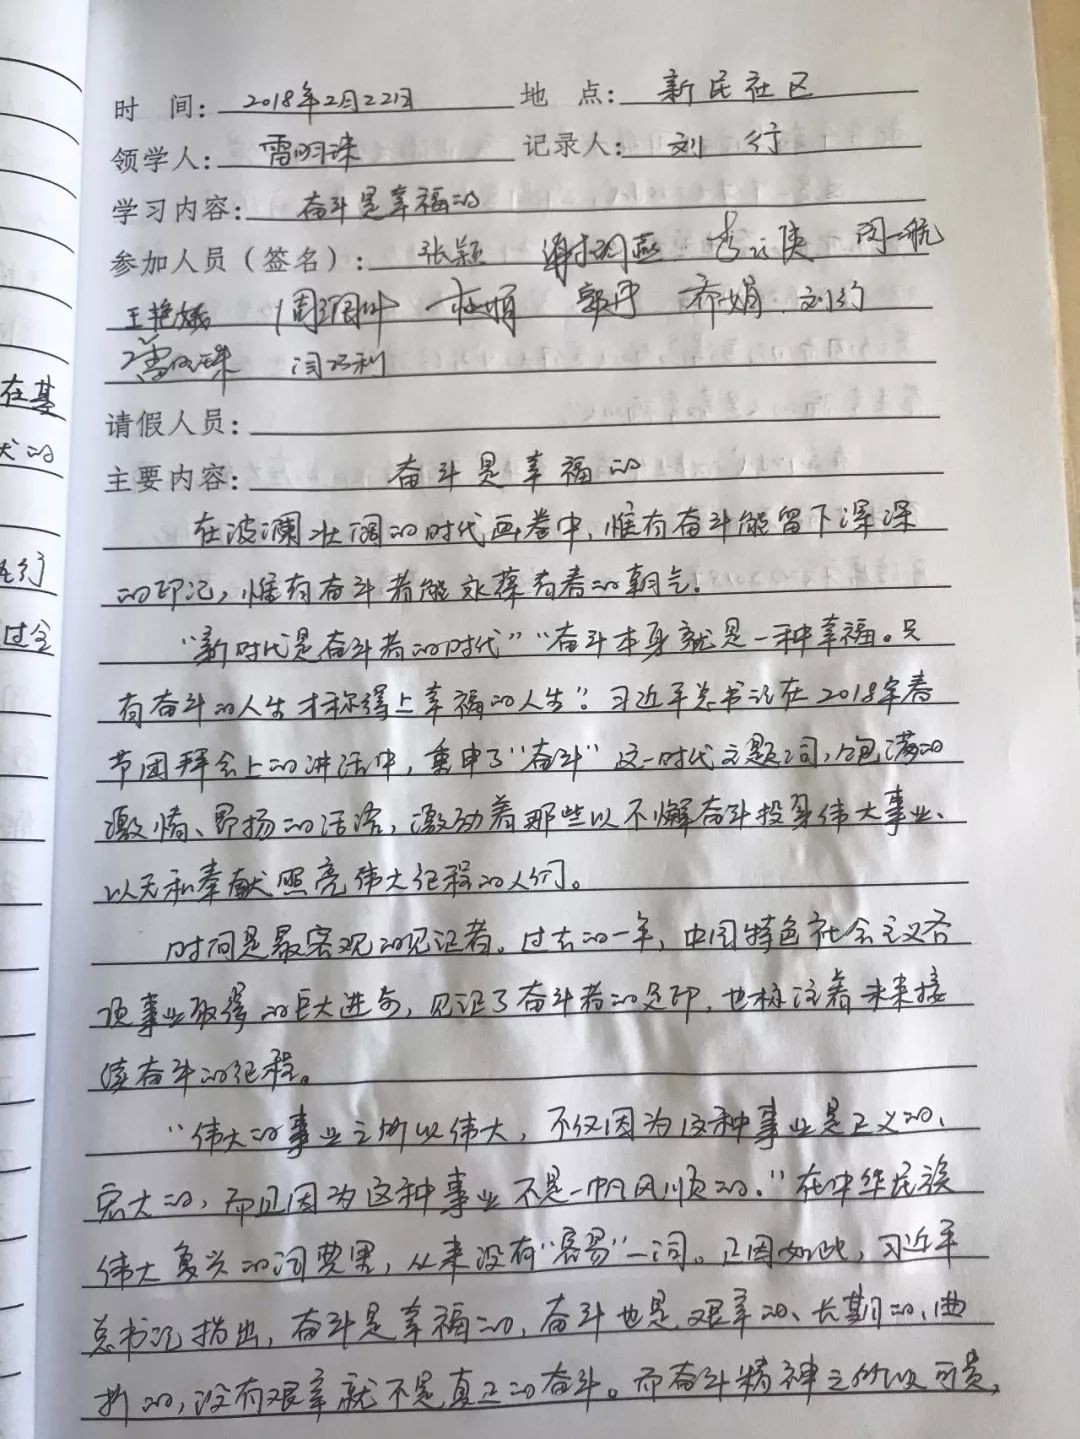 在基
大的
行
过全
时 间: 2018年2月22日 地 点: 新民社区
领学人: 雷明珠 记录人: 刘 行
学习内容: 奋斗是幸福的
参加人员(签名): 张颖 谢明燕
王艳娥 郭丹 乔娟
雷明珠
请假人员:
主要内容: 奋斗是幸福的
在波澜壮阔的时代画卷中,惟有奋斗能留下深深
的印记,惟有奋斗者能永葆青春的朝气!
“新时代是奋斗者的时代”“奋斗本身就是一种幸福。只
有奋斗的人生才称得上幸福的人生”。习近平总书记在2018年春
节团拜会上的讲话中,重申了“奋斗”这一时代主题词,饱满的
激情、昂扬的话语,激励着那些以不懈奋斗投身伟大事业、
以无私奉献照亮伟大征程的人们。
时间是最客观的见证者。过去的一年,中国特色社会主义各
项事业取得的巨大进步,见证了奋斗者的足印,也标注着未来接
续奋斗的征程。
“伟大的事业之所以伟大,不仅因为这种事业是正义的、
宏大的,而且因为这种事业不是一帆风顺的。”在中华民族
伟大复兴的词典里,从来没有“容易”一词。正因如此,习近平
总书记指出,奋斗是幸福的,奋斗也是艰辛的、长期的、曲
折的,没有艰辛就不是真正的奋斗。而奋斗精神之所以可贵,